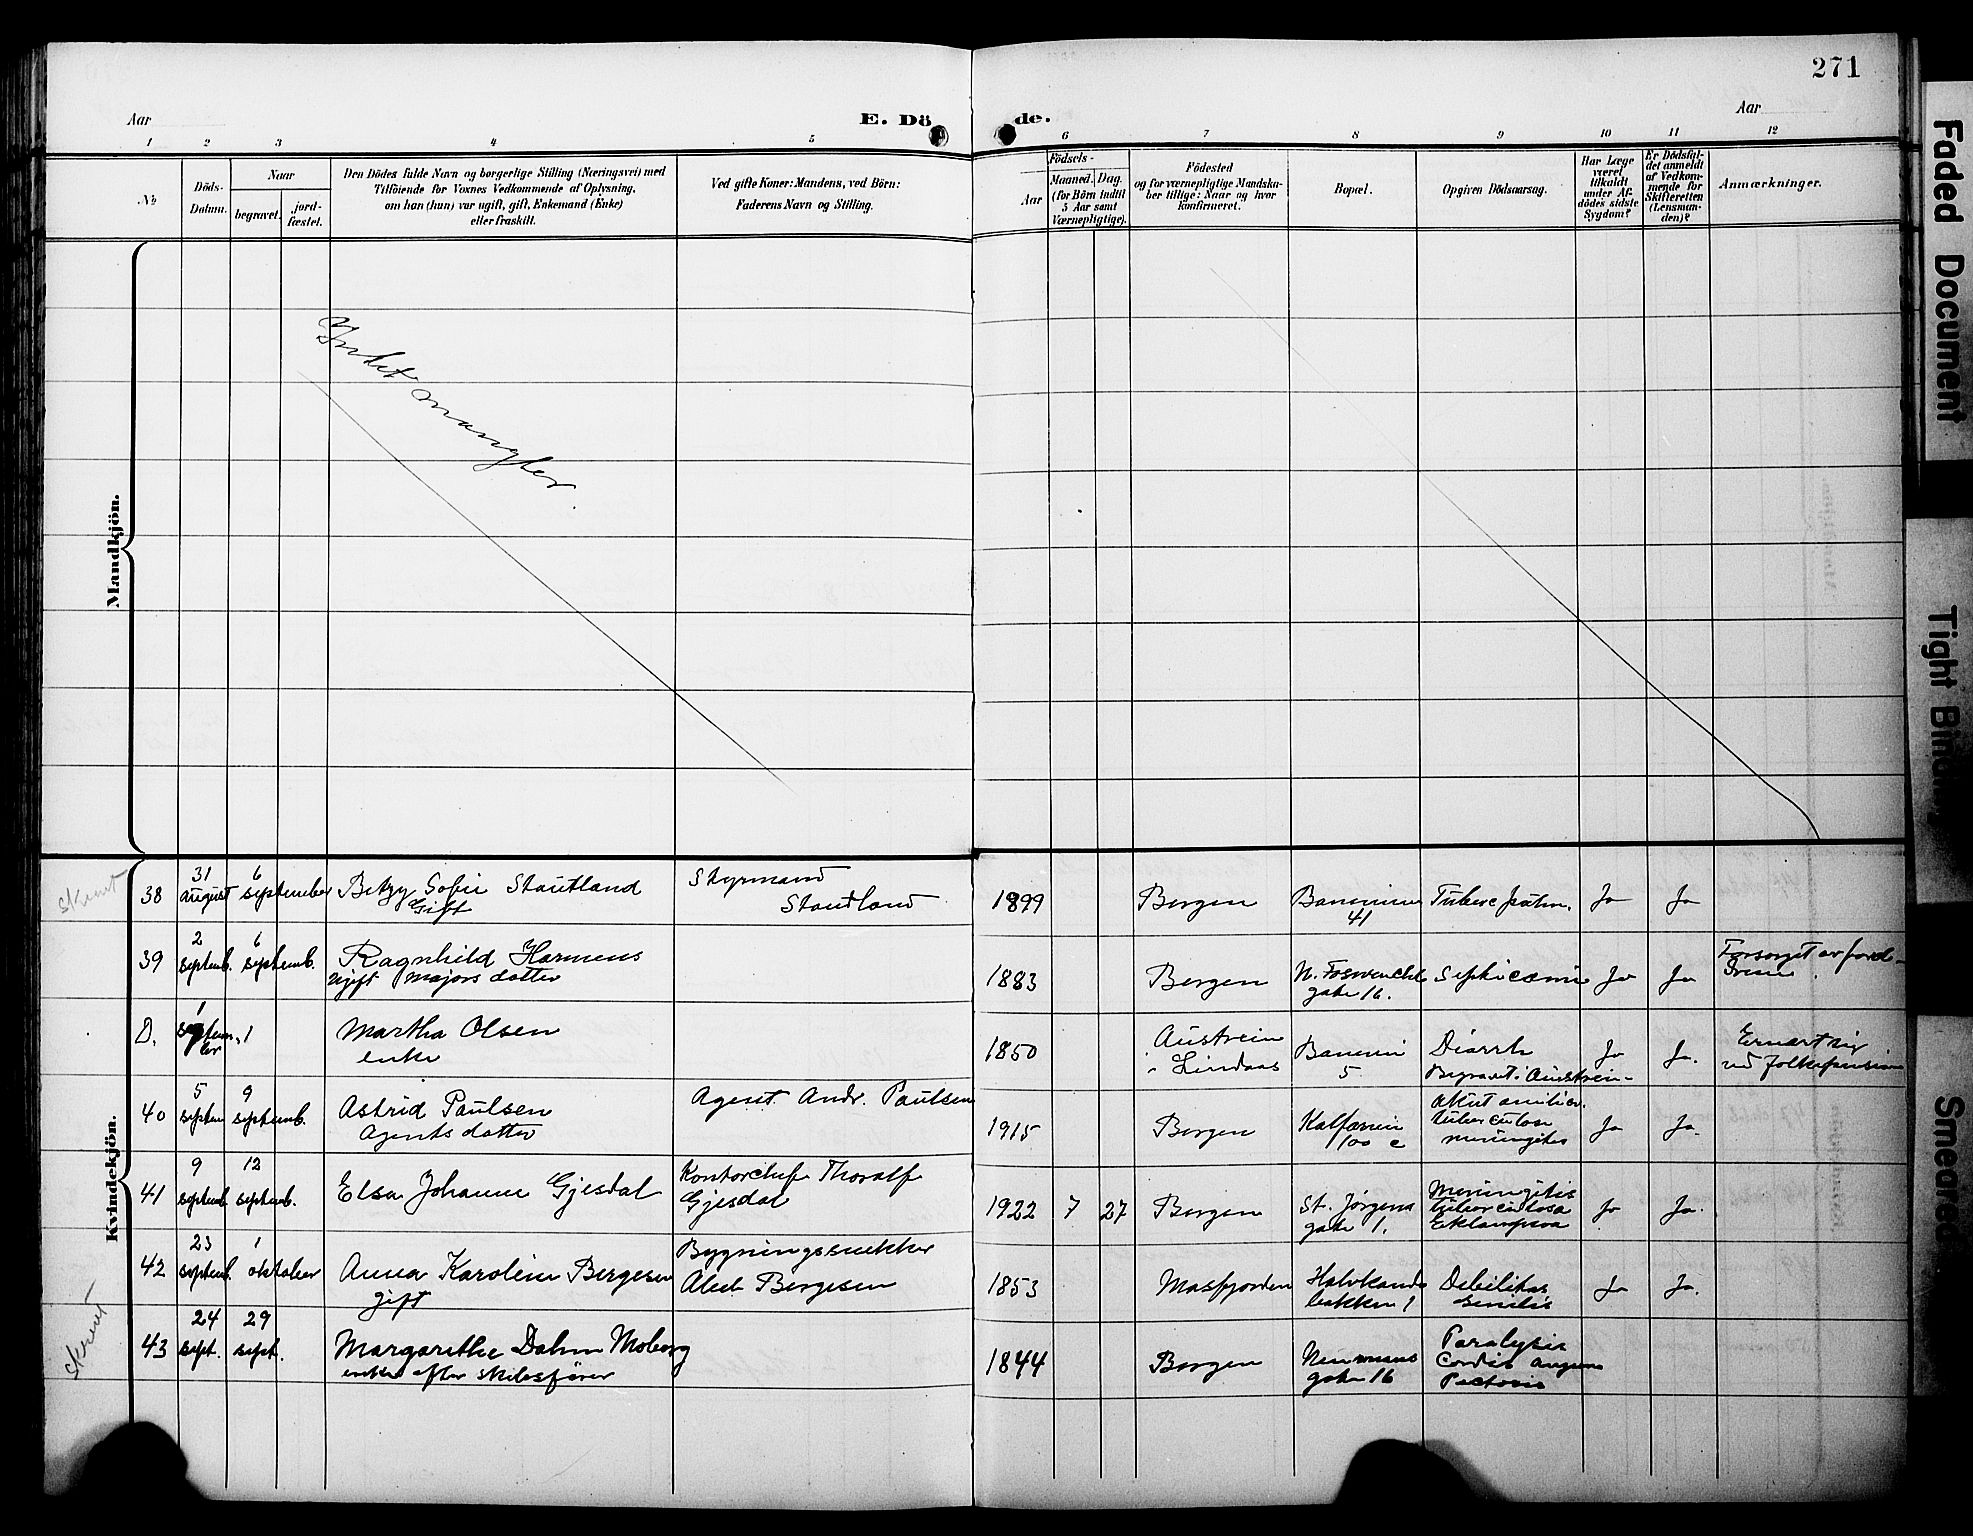 271
Aar
E. Dö
de.
Aar
1 2 3 4 5 6 7 8 9 10 11 12
№
Döds-
Datum.
Naar
begravet.
jord-
fæstet.
Den Dödes fulde Navn og borgerlige Stilling (Næringsvei) med
Tilföiende for Voxnes Vedkommende af Oplysning,
om han (hun) var ugift, gift, Enkemand (Enke)
eller fraskilt.
Ved gifte Koner: Mandens, ved Börn:
Faderens Navn og Stilling.
Födsels-
Aar
Maaned. Dag.
(for Börn indtil
5 Aar samt
Værnepligtige).
Födested
og for værnepligtige Mandska-
ber tillige: Naar og hvor
konfirmeret.
Bopæl.
Opgiven Dödsaarsag.
Har Læge
været
tilkaldt
under Af-
dödes sidste
Sygdom?
Er Dödsfal-
det anmeldt
af Vedkom-
mende for
Skifteretten
(Lensman-
den)?
Anmærkninger.
Mandkjön.
Intet mangler.
Kvindekjön.
38
31
august
6
september
Betzy Sofie Stautland
Gift
Styrmand
Stautland
1899
Bergen
41
Ja
Ja
39
2
septemb.
6
septemb.
Ragnhild Harmens
ugift majors datter
1883
Bergen
gate 16.
Septicæmi
Ja
Ja
Forsørget av
D.
1
septem-
ber
1
Martha Olsen
enke
1850
Austrein
Lindaas
5
Diarrh
Begravet i Austrein-
Ja
Ja.
Ernært sig
ved folkepension
40
5
septem
9
septemb.
Astrid Paulsen
Agents datter
Agent Andr. Paulsen
1915
Bergen
Kalfarvein
100 c
Akut miliær
tuberculose
meningitis
Ja
Ja.
41
9
septemb.
12
septemb.
Elsa Johanne Gjesdal
Kontorchef Thoralf
Gjesdal
1922
7
27
Bergen
St. Jørgens
gate 1.
Meningitis
tuberculosa
Eklampsia
Ja
Ja.
42
23
septemb.
1
oktober
Anna Karoline Bergesen
gift
Bygningssnekker
Bergesen
1853
Masfjorden
Halvkands
bakken 1
Debilitas
senilis
Ja
Ja.
43
24
sept.
29
sept.
Margarethe Dahm Moberg
enke efter skibsfører
1844
Bergen
Neumanns
gate 16
Paralysis
Cordis angina
Pectoris
Faded Document
Tight Bin
Smeared